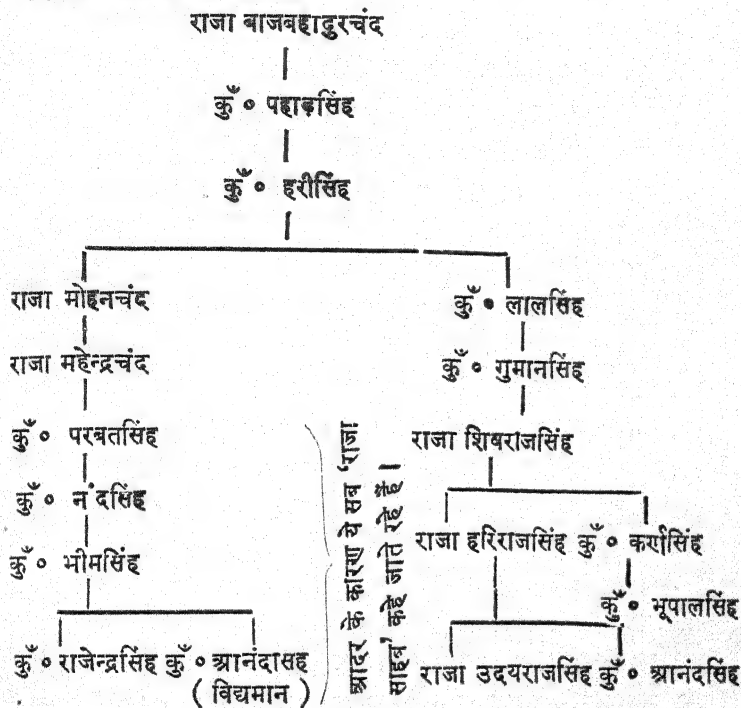 राजा बाजबहादुरचंद
कुँ० पहाड़सिंह
कुँ० हरीसिंह
राजा मोहनचंद
राजा महेन्द्रचंद
कुँ० परबतसिंह
कुँ० नंदसिंह
कुँ० भीमसिंह
कुँ० राजेन्द्रसिंह कुँ० आनंदासह
( विद्यमान )
आदर के कारण ये सब 'राजा
साहब' कहे जाते रहे हैं।
कुँ० लालसिंह
कुँ० गुमानसिंह
राजा शिवराजसिंह
राजा हरिराजसिंह कुँ० कर्णसिंह
कुँ० भूपालसिंह
राजा उदयराजसिंह कुँ० आनंदसिंह